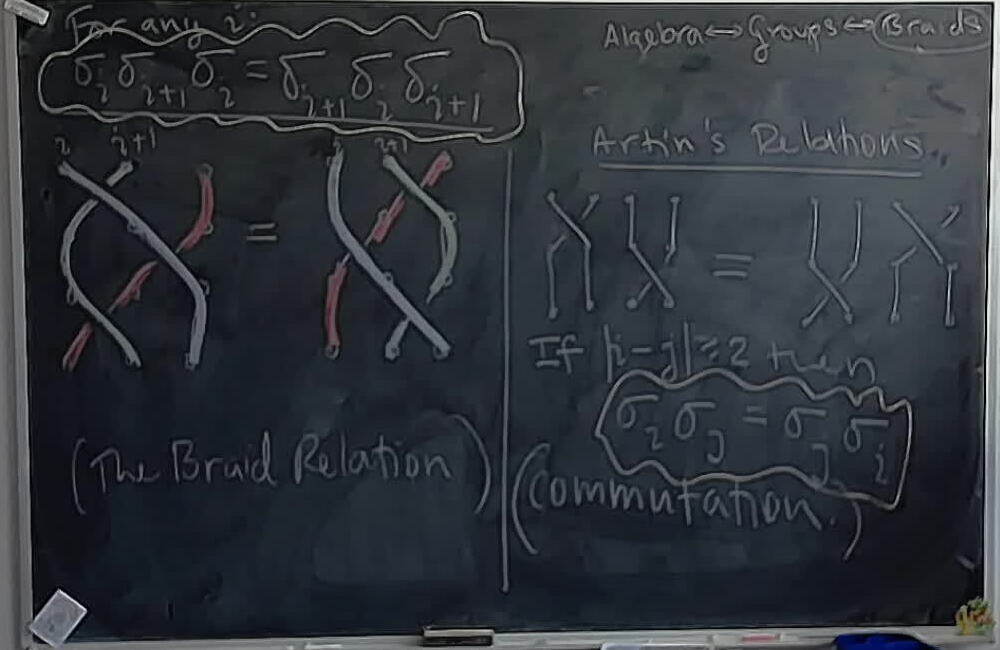 For any i:
σᵢσᵢ₊₁σᵢ = σᵢ₊₁σᵢσᵢ₊₁
i i+1
i i+1
(The Braid Relation)
Algebra ↔ Groups ↔ Braids
Artin's Relations
=
=
If |i-j| ≥ 2 then
σᵢσⱼ = σⱼσᵢ
(commutation.)